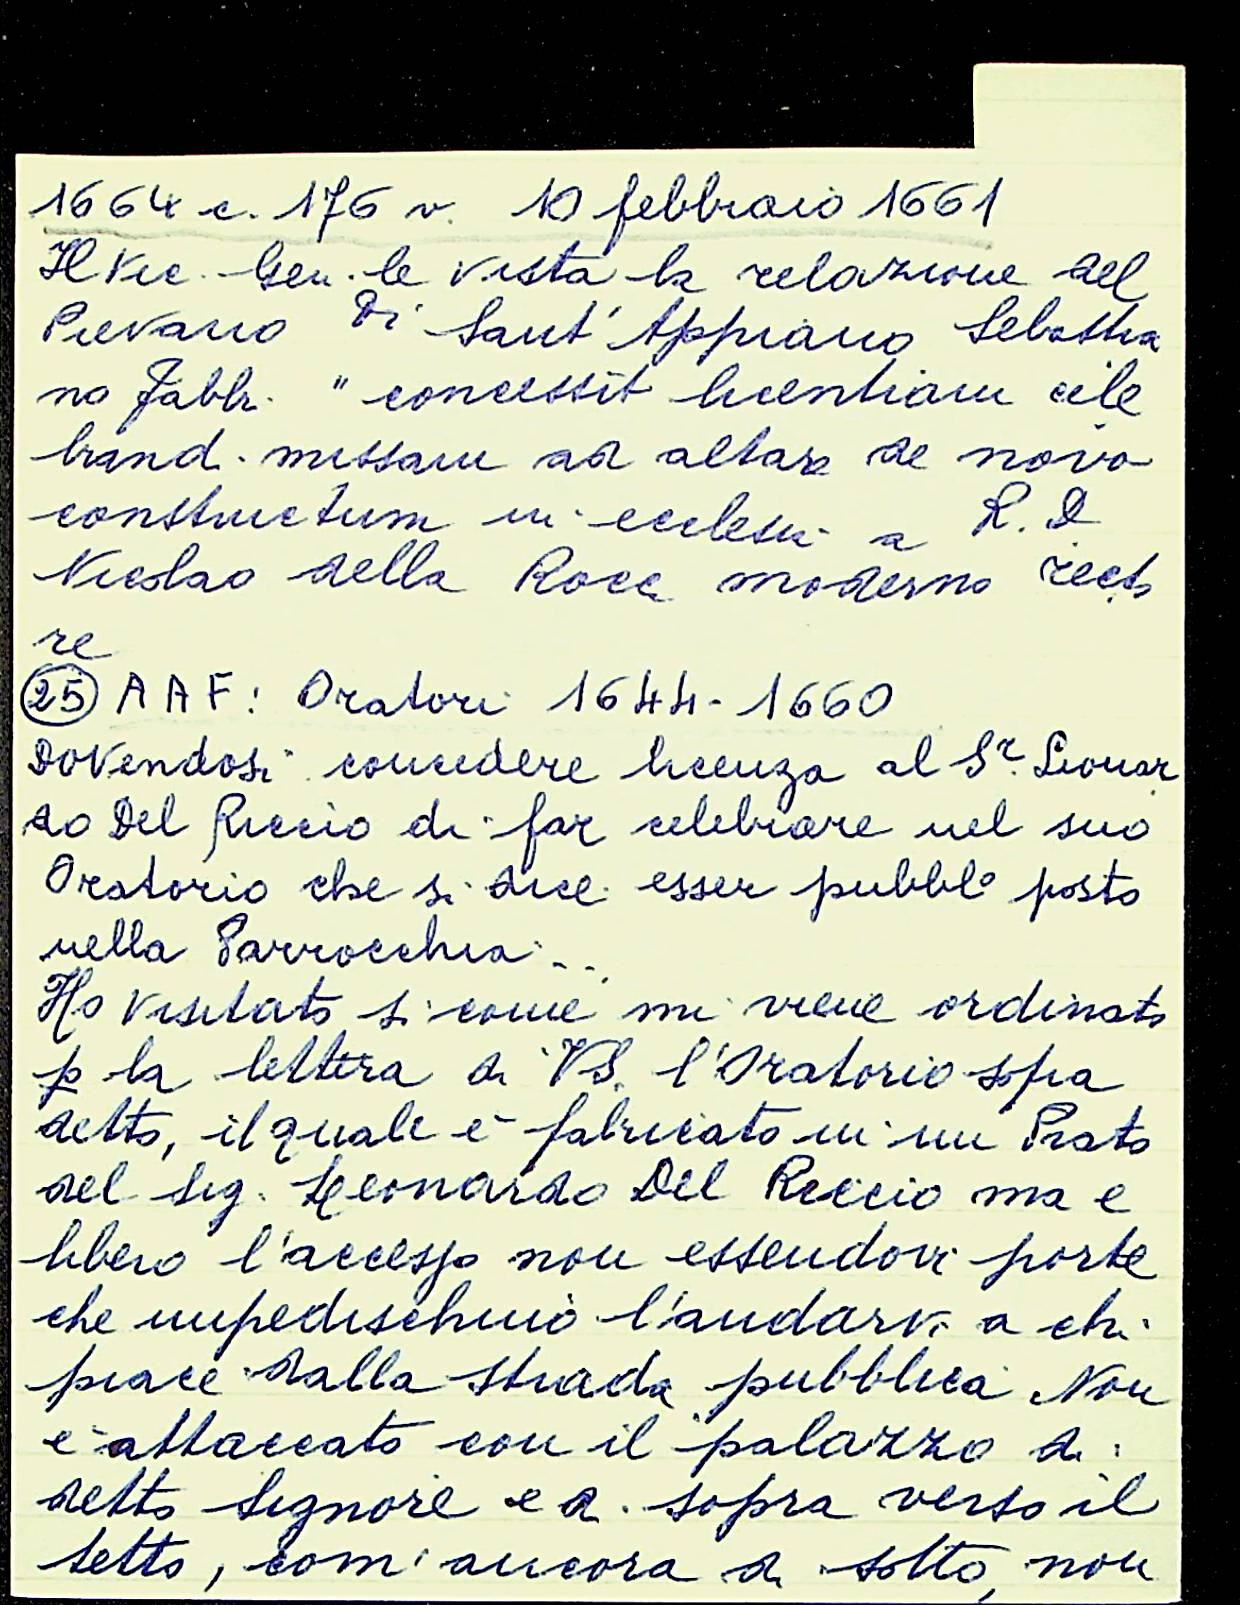 1664 c. 176 v. 10 febbraio 1661
Il Vic. Gen.le vista la relazione del
Pievano di Sant'Appiano Sebastia
no Fabbr. "concessit licentiam cele
brand. missam ad altare de novo
constructum in ecclesi- a R.D
Nicolao della Rocc moderno recto
re
(25) AAF: Oratori 1644-1660
Dovendosi concedere licenza al Sr. Lionar
do Del Riccio di far celebrare nel suo
Oratorio che si dice esser pubblo posto
nella Parrocchia...
Ho visitato si come mi viene ordinato
p la lettera di VS. l'Oratorio sopra
detto, il quale è fabricato in un Prato
del Sig. Leonardo Del Riccio ma e
libero l'accesso non essendovi porte
che impedischino l'andarvi a chi
piace dalla strada pubblica Non
è attaccato con il palazzo di
detto Signore e di sopra verso il
tetto, com'ancora di sotto, non